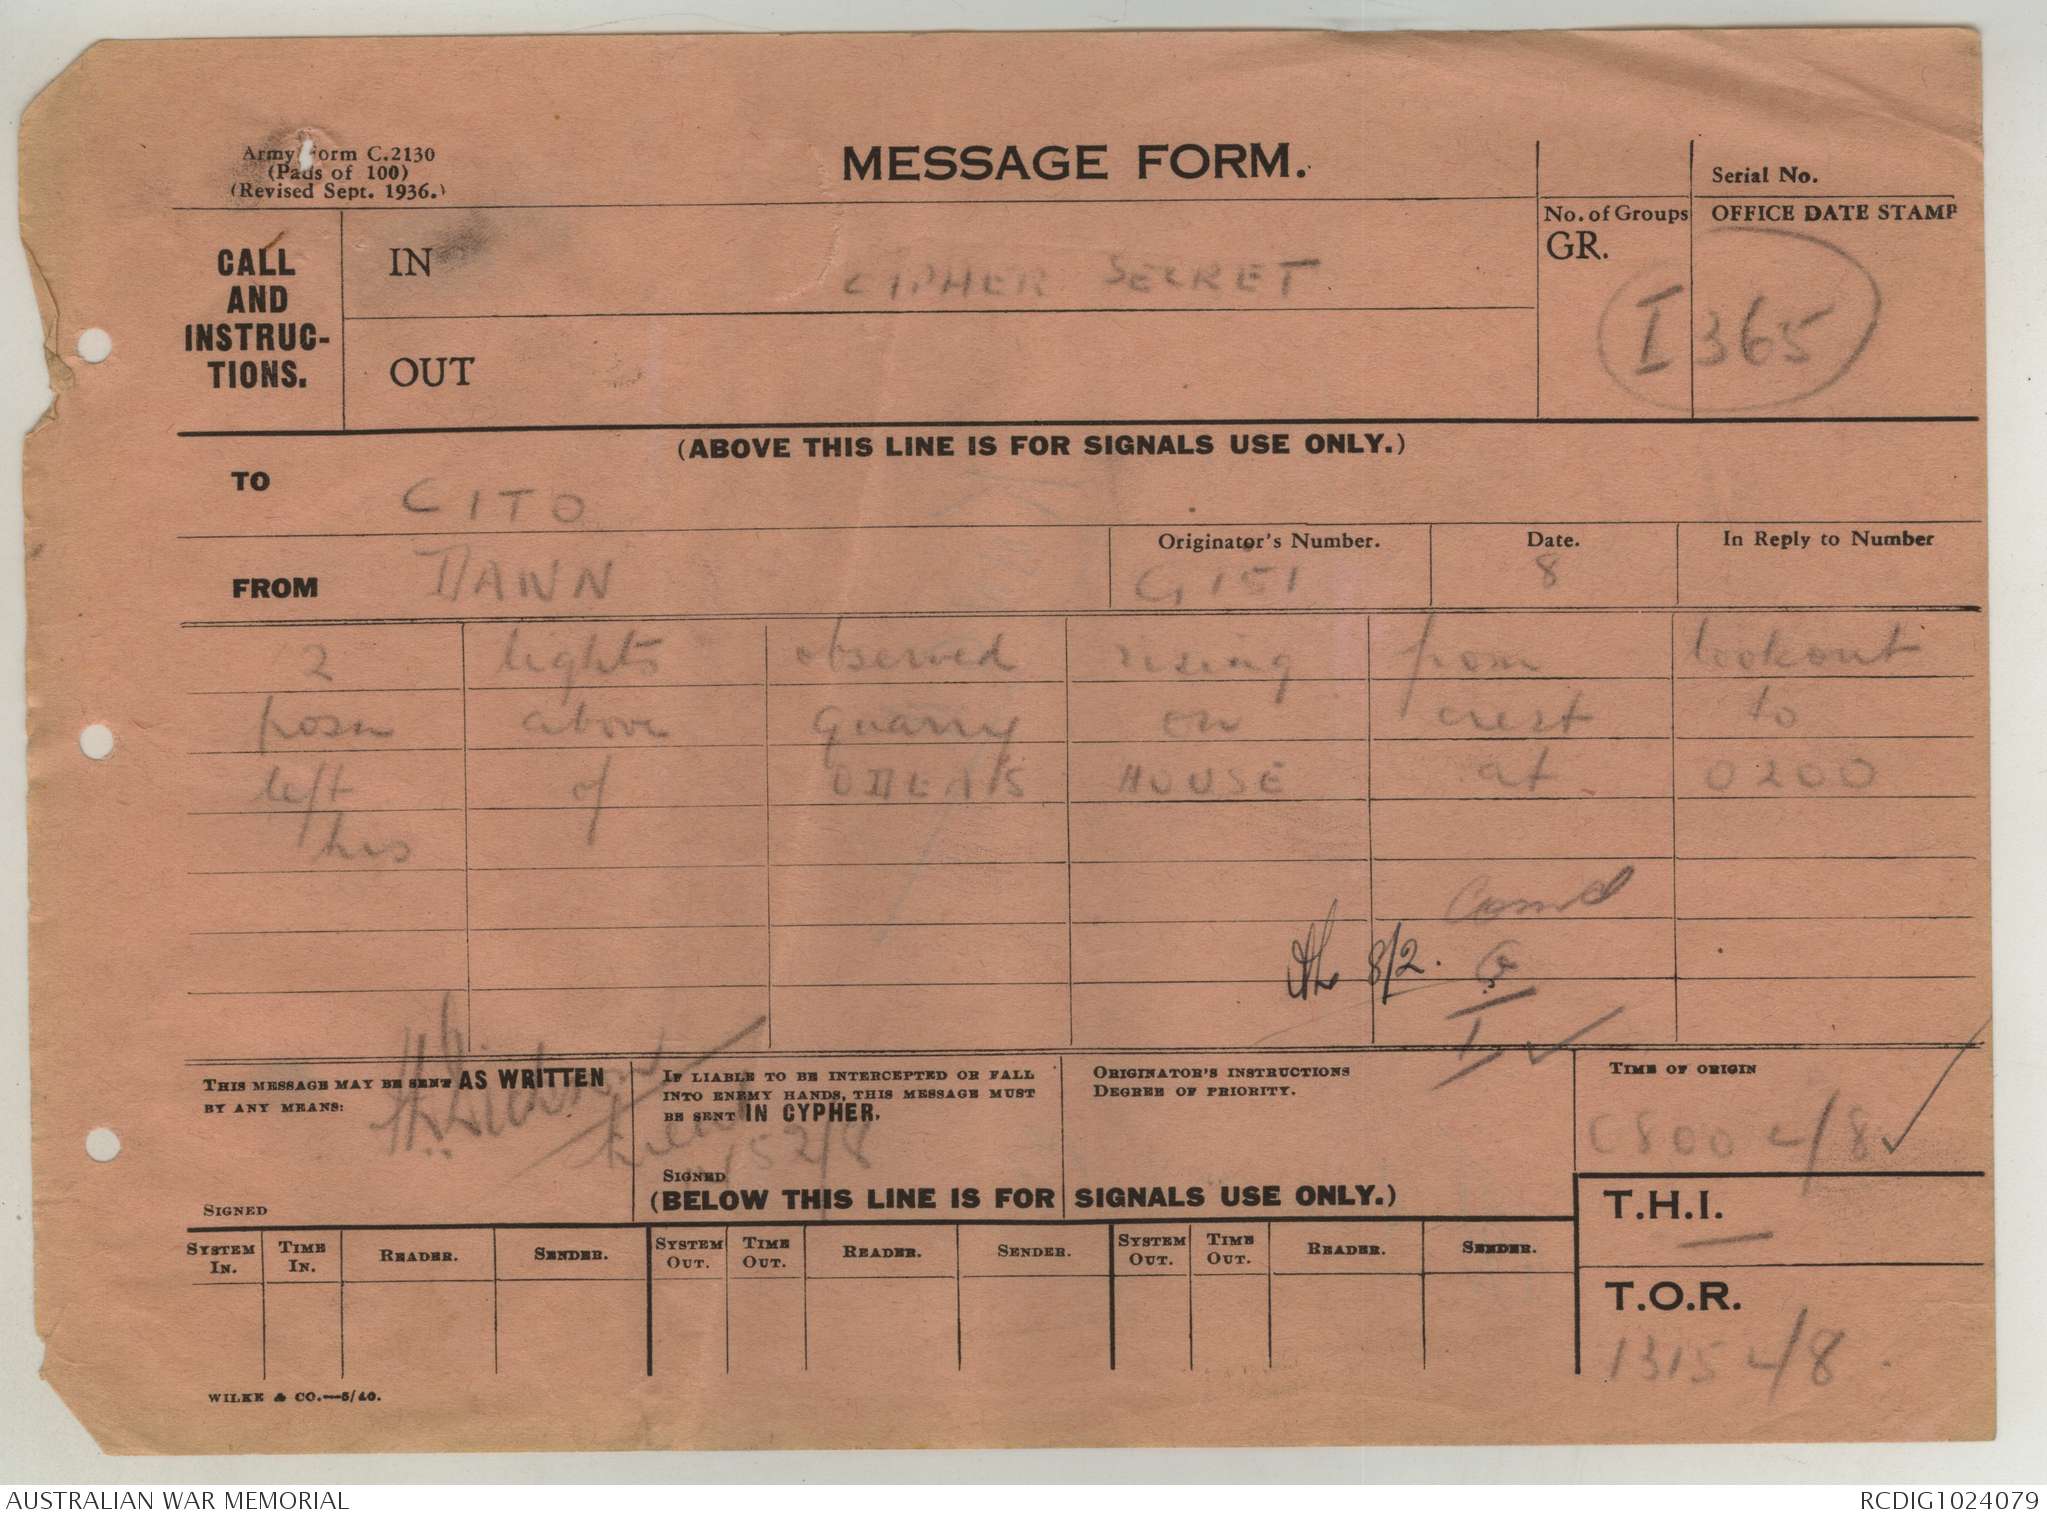 Army Form C.2130
(Pads of 100)
(Revised Sept. 1936.)
MESSAGE FORM.
Serial No.
No. of Groups
GR.
OFFICE DATE STAMP
CALL
AND
INSTRUC-
TIONS.
IN
CIPHER SECRET
OUT
I 365
(ABOVE THIS LINE IS FOR SIGNALS USE ONLY.)
TO
CITO
FROM
DAWN
Originator's Number.
G 151
Date.
8
In Reply to Number
2 lights observed rising from lookout
posn above quarry on crest to
left of HOUSE at 0200
hrs
Comd
8/2.
G
I
THIS MESSAGE MAY BE SENT AS WRITTEN
BY ANY MEANS:
SIGNED
IF LIABLE TO BE INTERCEPTED OR FALL
INTO ENEMY HANDS, THIS MESSAGE MUST
BE SENT IN CYPHER.
SIGNED
ORIGINATOR'S INSTRUCTIONS
DEGREE OF PRIORITY.
TIME OF ORIGIN
0800 4/8
(BELOW THIS LINE IS FOR SIGNALS USE ONLY.)
T.H.I.
SYSTEM IN.
TIME IN.
READER.
SENDER.
SYSTEM OUT.
TIME OUT.
READER.
SENDER.
SYSTEM OUT.
TIME OUT.
READER.
SENDER.
T.O.R.
1315 4/8.
WILKE & CO.—5/40.
AUSTRALIAN WAR MEMORIAL
RCDIG1024079